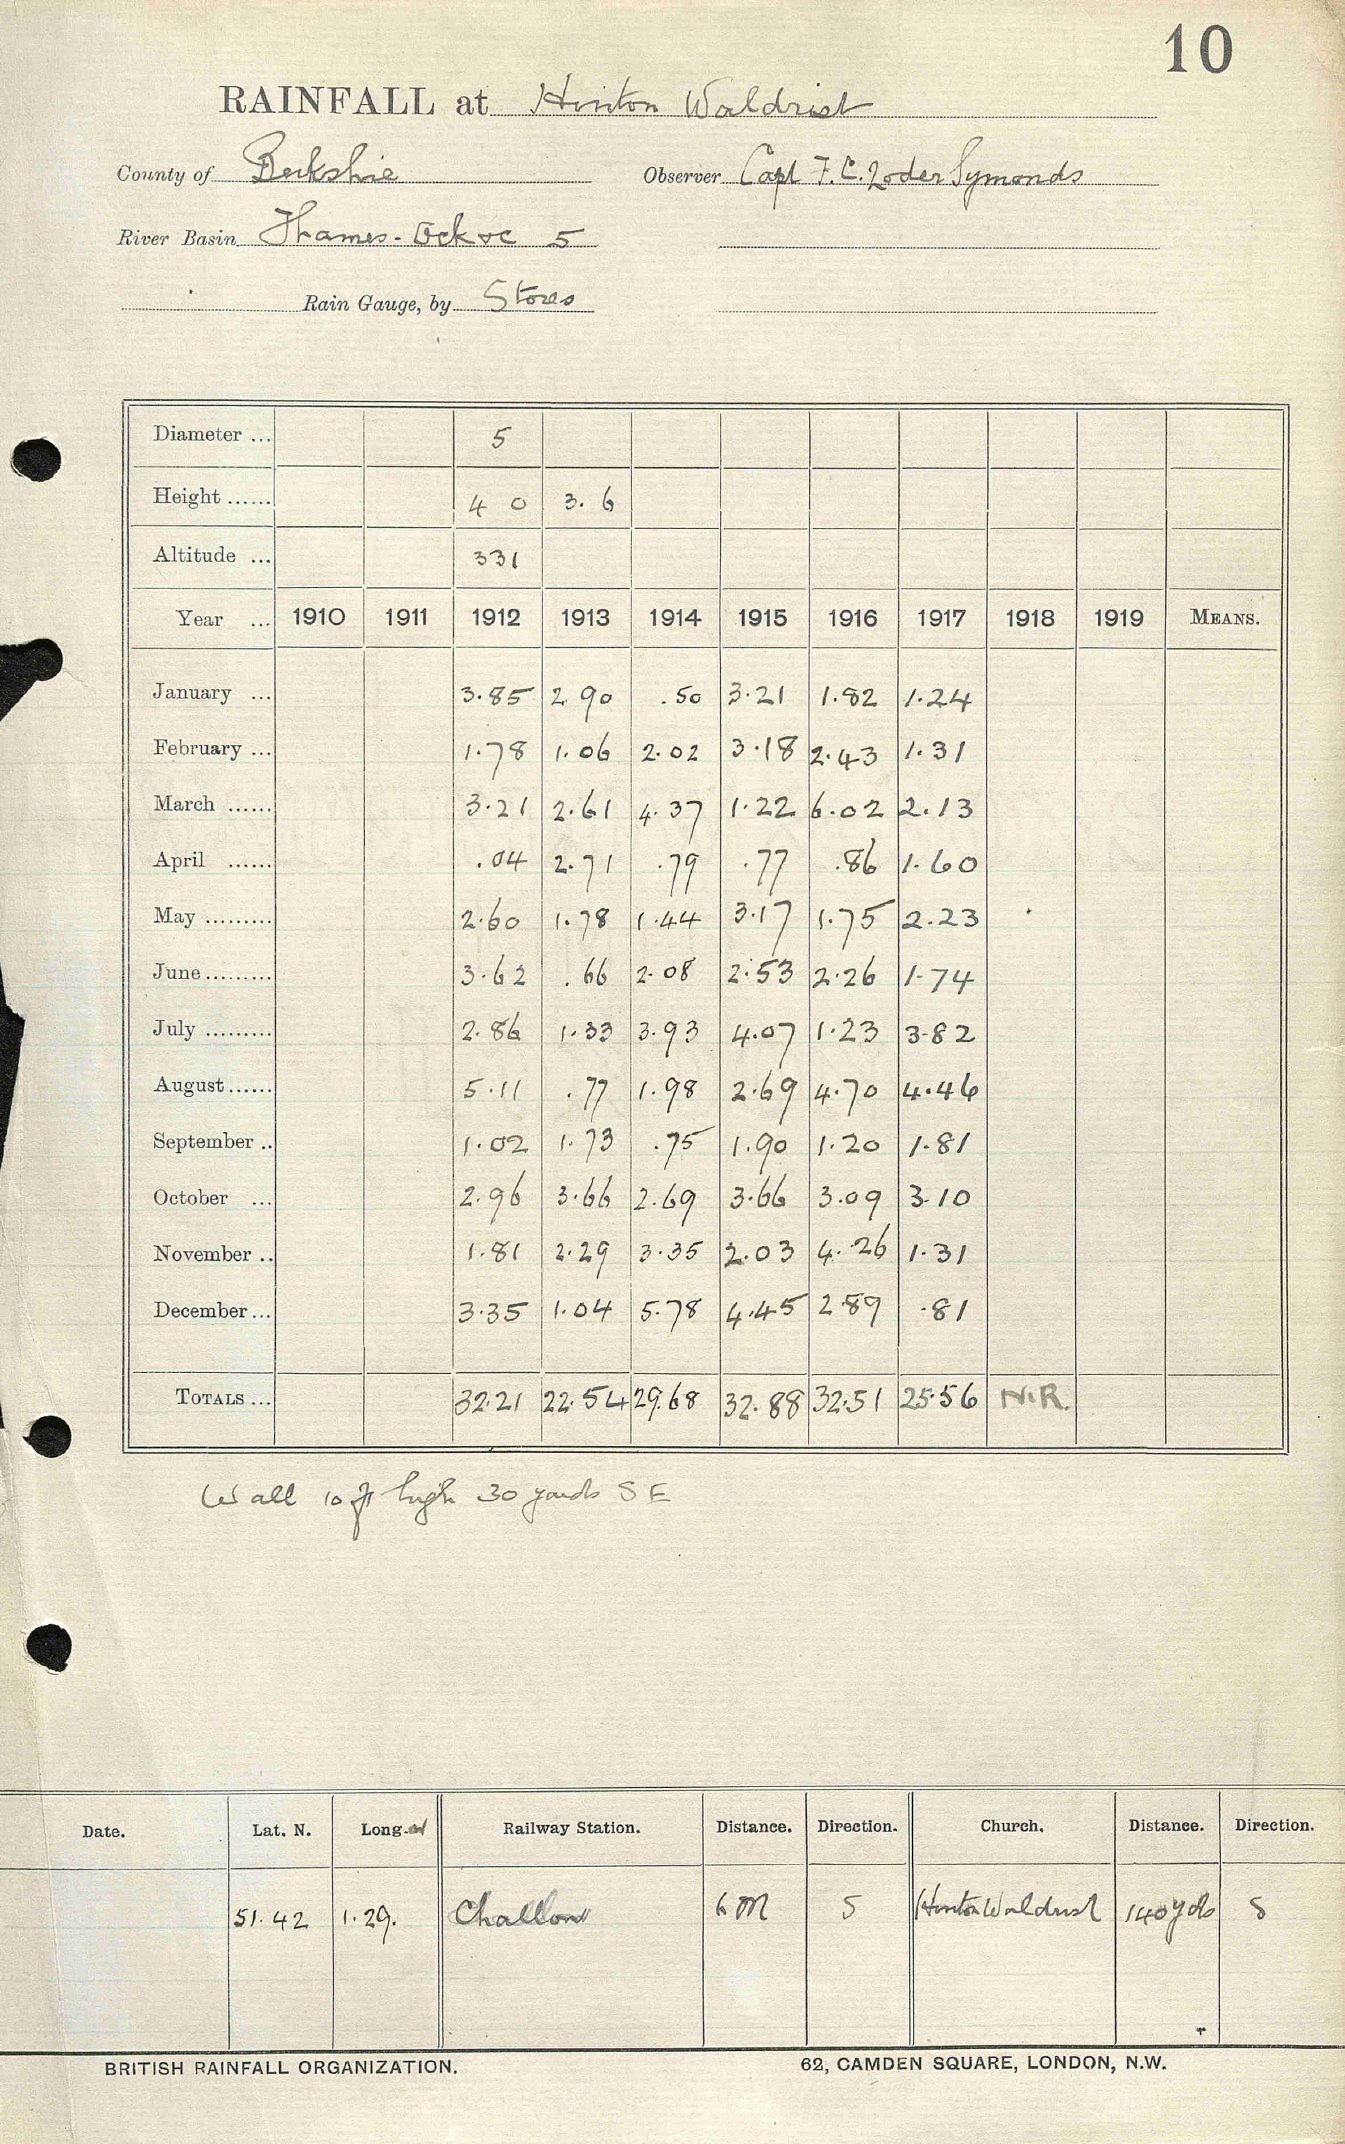 10
RAINFALL at Hinton Waldrist
County of Berkshire Observer Capt F. C. Loder Symonds
River Basin Thames - Ock &c 5
Rain Gauge, by Stores
Diameter ... 5
Height ...... 4 0 3. 6
Altitude ... 331
Year ... 1910 1911 1912 1913 1914 1915 1916 1917 1918 1919 MEANS.
January ... 3.85 2.90 .50 3.21 1.82 1.24
February ... 1.78 1.06 2.02 3.18 2.43 1.31
March ...... 3.21 2.61 4.37 1.22 6.02 2.13
April ...... .04 2.71 .79 .77 .86 1.60
May ......... 2.60 1.78 1.44 3.17 1.75 2.23
June ......... 3.62 .66 2.08 2.53 2.26 1.74
July ......... 2.86 1.33 3.93 4.07 1.23 3.82
August ...... 5.11 .77 1.98 2.69 4.70 4.46
September .. 1.02 1.73 .75 1.90 1.20 1.81
October ... 2.96 3.66 2.69 3.66 3.09 3.10
November .. 1.81 2.29 3.35 2.03 4.26 1.31
December ... 3.35 1.04 5.78 4.45 2.89 .81
TOTALS ... 32.21 22.54 29.68 32.88 32.51 25.56 N.R.
Wall 10 ft high 30 yards S E
Date. Lat. N. Long. W Railway Station. Distance. Direction. Church. Distance. Direction.
51.42 1.29. Challow 6 M S Hinton Waldrist 140 yds S
BRITISH RAINFALL ORGANIZATION. 62, CAMDEN SQUARE, LONDON, N.W.